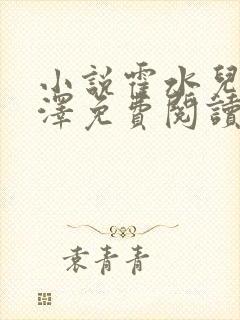 小說霍水兒
澤免費閱讀
袁青青